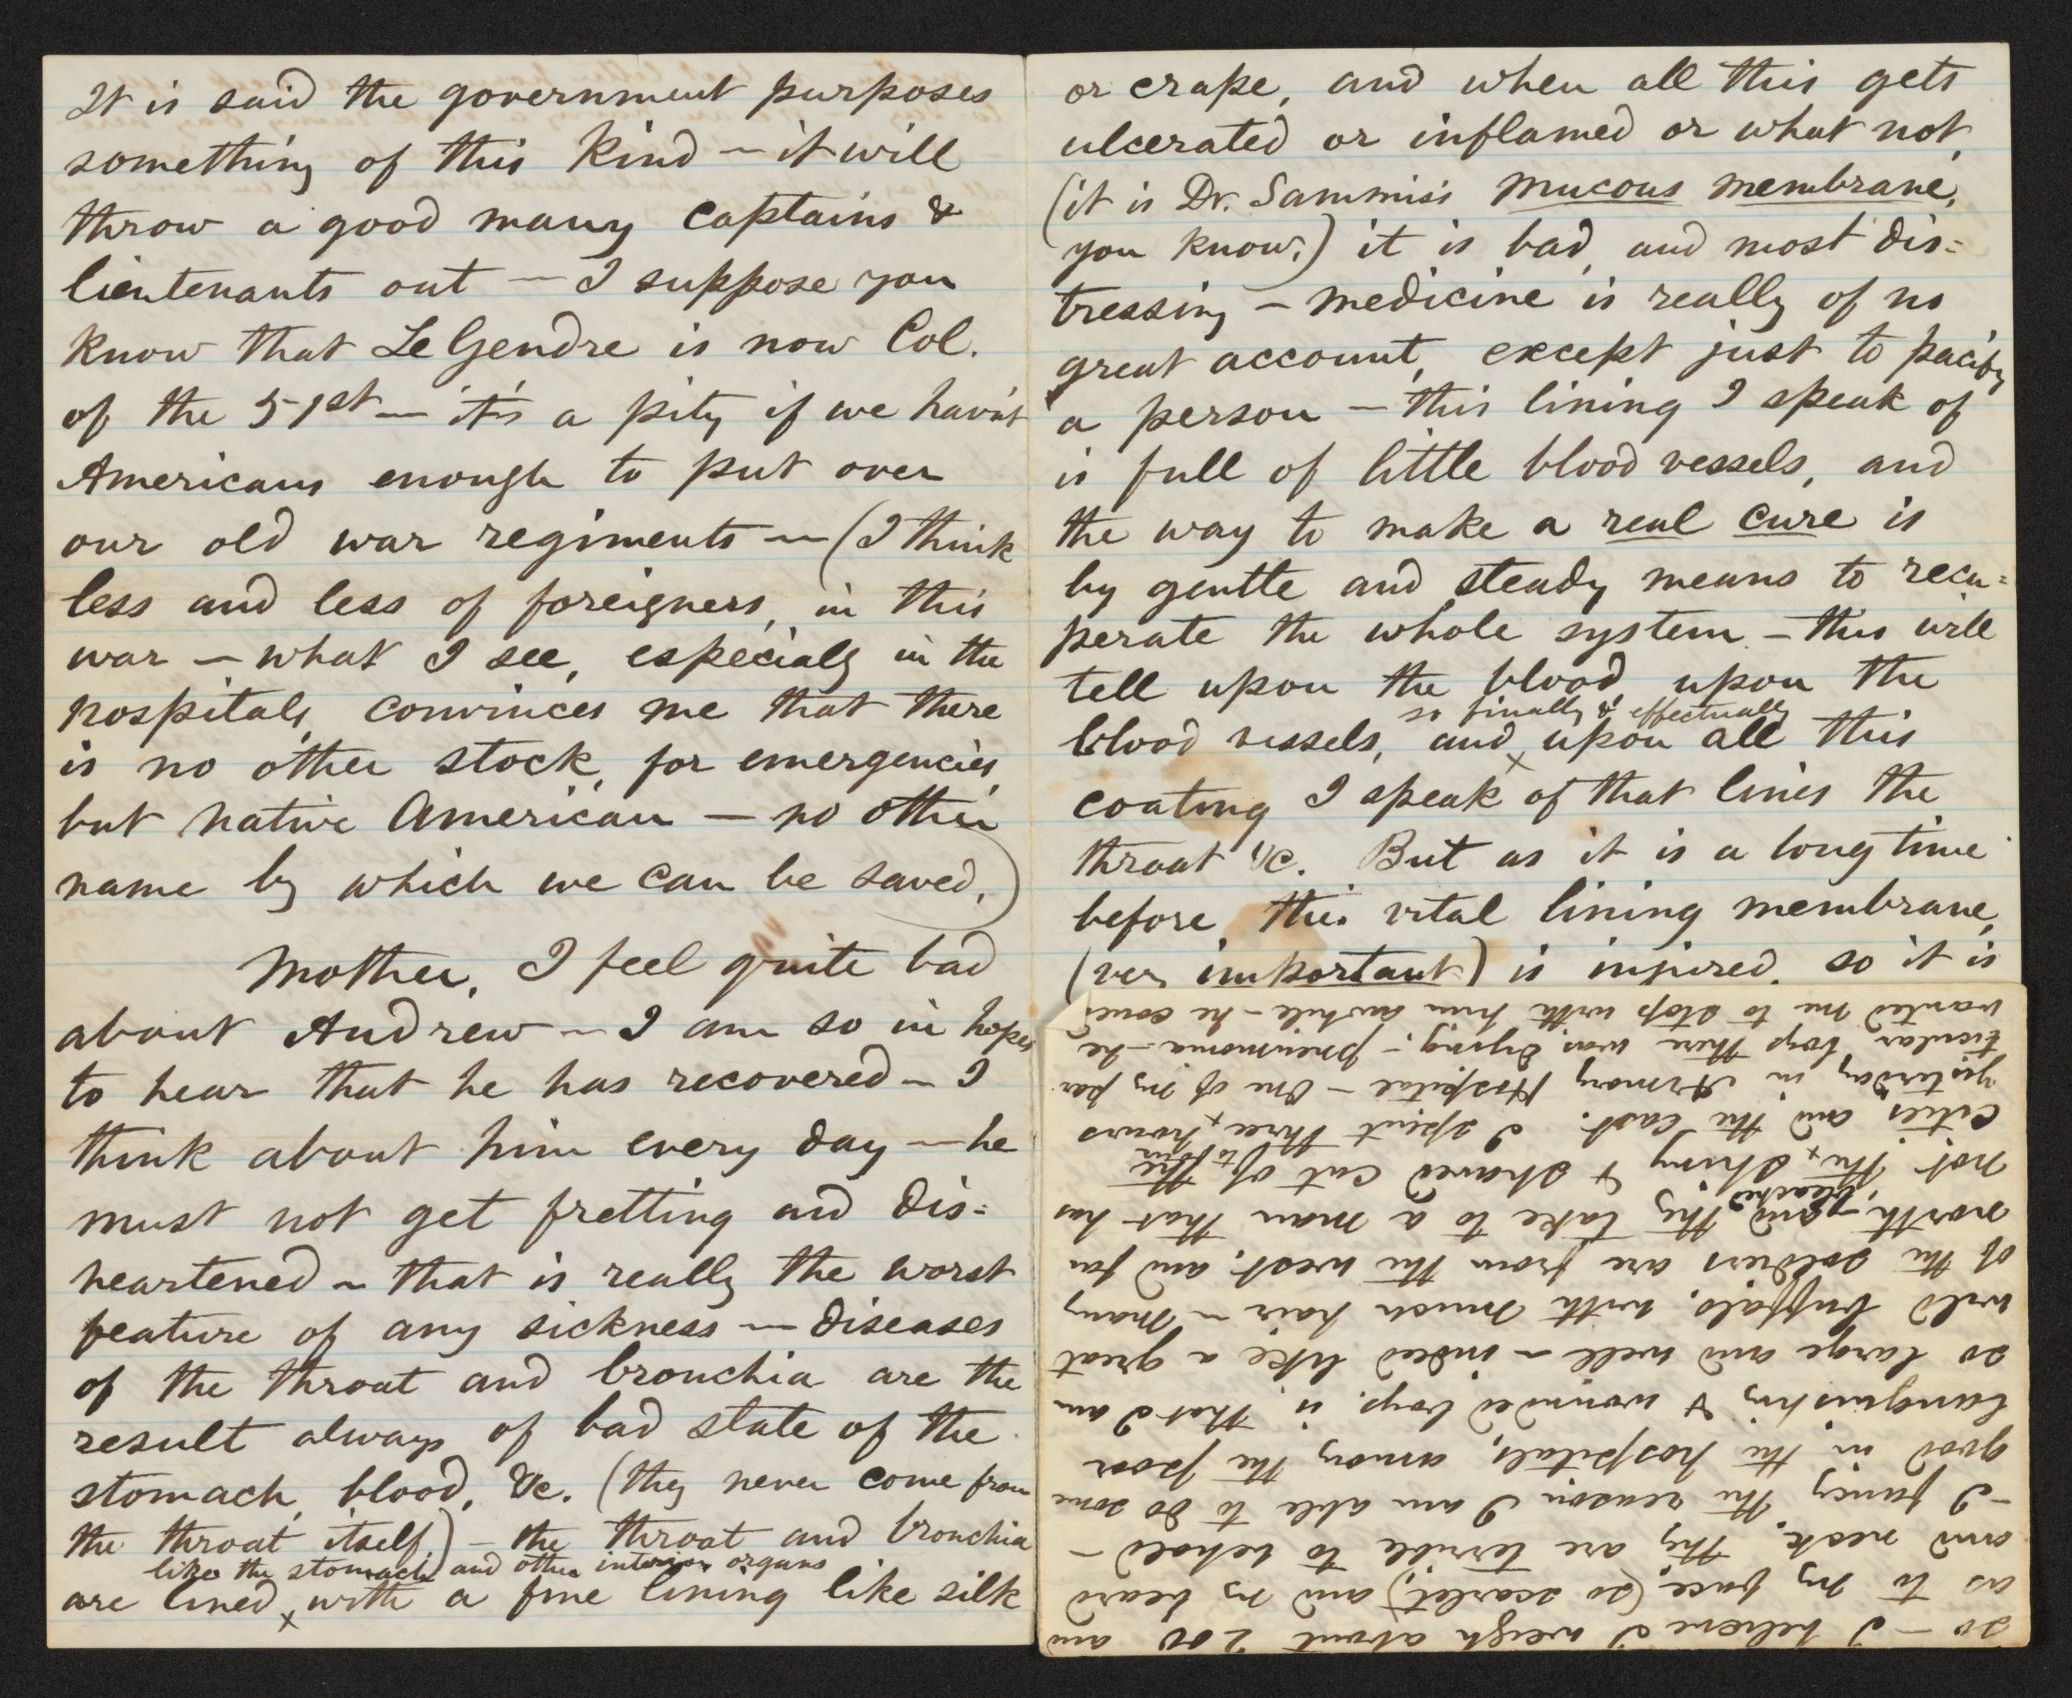 It is said the government purposes
something of this kind — it will
throw a good many Captains &
lieutenants out — I suppose you
know that Le Gendre is now Col.
of the 51st — it's a pity if we hav'nt
Americans enough to put over
our old war regiments — (I think
less and less of foreigners, in this
war — what I see, especialy in the
hospitals, convinces me that there
is no other stock, for emergencies,
but native American — no other
name by which we can be saved.)
Mother, I feel quite bad
about Andrew — I am so in hopes
to hear that he has recovered — I
think about him every day — he
must not get fretting and dis=
heartened — that is really the worst
feature of any sickness — diseases
of the throat and bronchia are the
result always of bad state of the
stomach, blood, &c. (they never come from
the throat itself.) — the throat and bronchia
like the stomach and other interior organs
are lined x with a fine lining like silk
or crape, and when all this gets
ulcerated or inflamed or what not,
(it is Dr. Sammis's mucous membrane,
you know.) it is bad, and most dis=
tressing — medicine is really of no
great account, except just to pacify
a person — this lining I speak of
is full of little blood vessels, and
the way to make a real cure is
by gentle and steady means to recu=
perate the whole system — this will
tell upon the blood, upon the
so finally & effectually
blood vessels, and x upon all this
coating I speak of that lines the
throat &c. But as it is a long time
before this vital lining membrane,
(very important) is injured, so it is
so — I believe I weigh about 200 and
as to my face, (so scarlet,) and my beard
and neck, they are terrible to behold —
— I fancy the reason I am able to do some
good in the hospitals, among the poor
languishing & wounded boys, is, that I am
so large and well — indeed like a great
wild buffalo, with much hair — many
of the soldiers are from the west, and far
north, — and they take to a man that has
bleached
not the x shiny & shaved cut of the
cities and the east. I spent three x hours
to four
yesterday in Armory Hospital — One of my par
ticular boys there was dying, — pneumonia — he
wanted me to stop with him awhile — he could